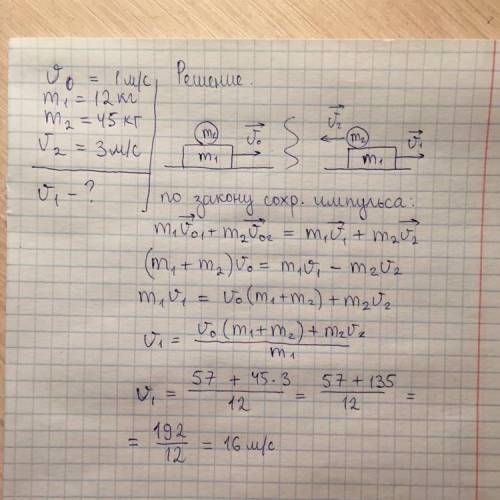 v₀ = 1 м/с
m₁ = 12 кг
m₂ = 45 кг
v₂ = 3 м/с
v₁ - ?
Решение.
m₂ m₁ v₀ v₂ m₂ m₁ v₁
по закону сохр. импульса:
m₁v₀₁ + m₂v₀₂ = m₁v₁ + m₂v₂
(m₁ + m₂)v₀ = m₁v₁ - m₂v₂
m₁v₁ = v₀(m₁+m₂) + m₂v₂
v₁ = v₀(m₁+m₂) + m₂v₂ / m₁
v₁ = 57 + 45·3 / 12 = 57 + 135 / 12 =
= 192 / 12 = 16 м/с